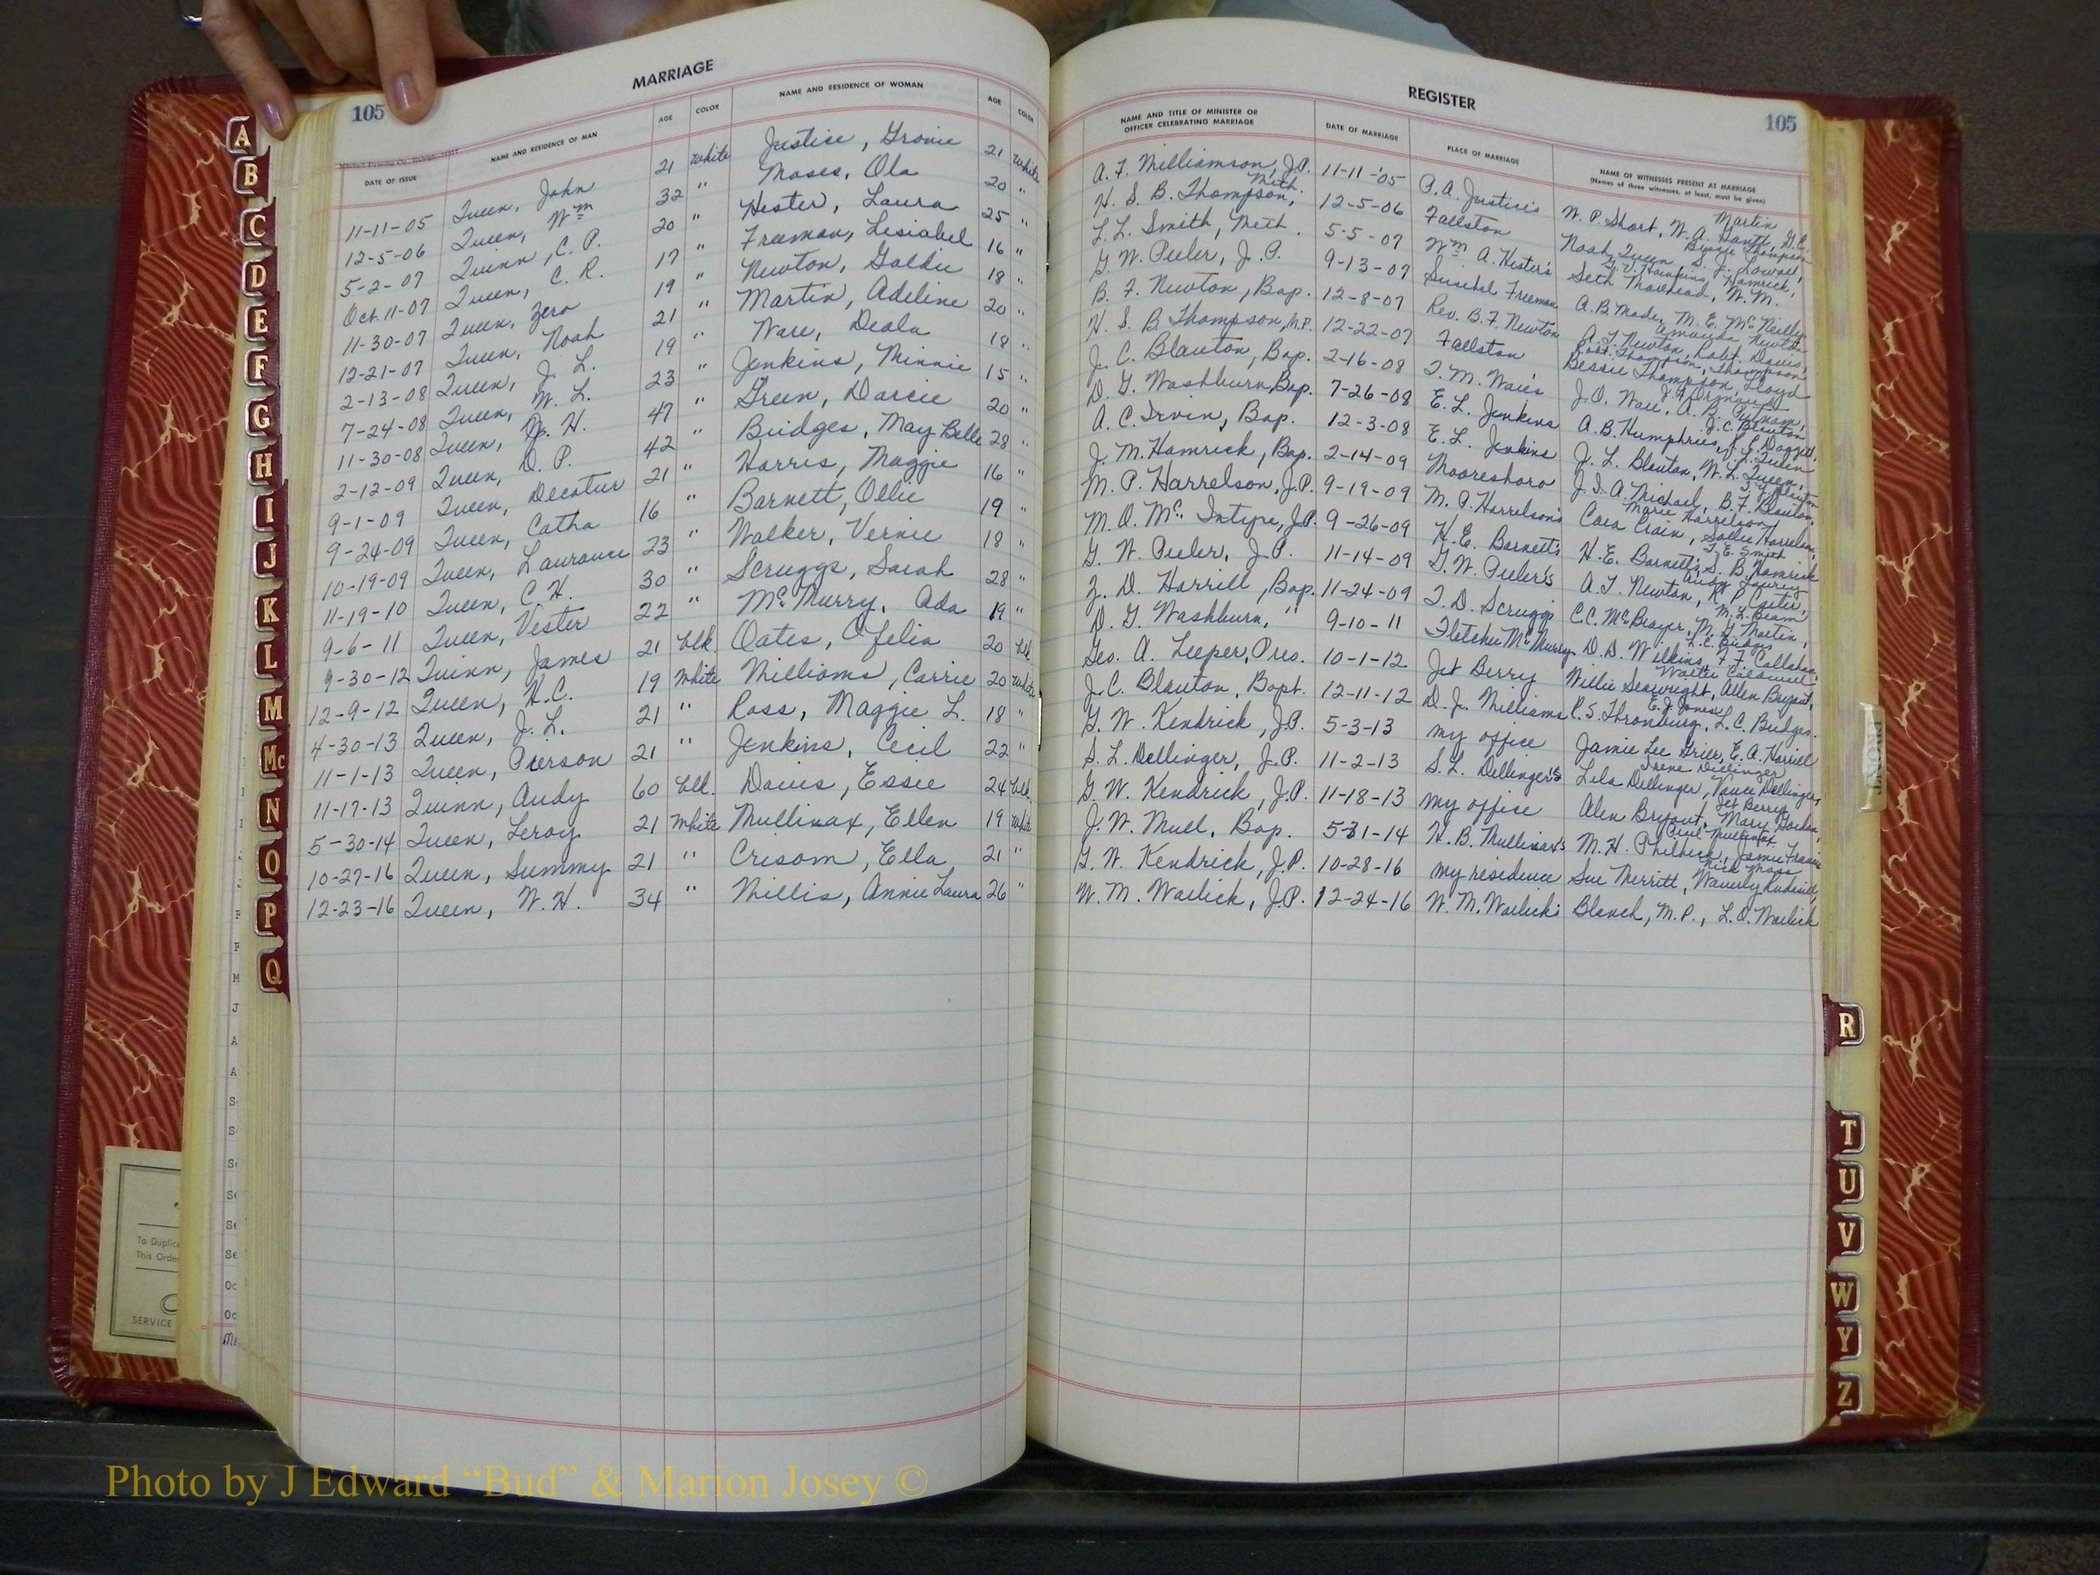 MARRIAGE
105
DATE OF ISSUE NAME AND RESIDENCE OF MAN AGE COLOR NAME AND RESIDENCE OF WOMAN AGE COLOR
11-11-05 Queen, John 21 White Justice, Grovie 21 White
12-5-06 Queen, Wm 32 " Moses, Ola 20 "
5-2-07 Quinn, C. P. 20 " Hester, Laura 25 "
Oct. 11-07 Queen, C. R. 17 " Freeman, Lisiabel 16 "
11-30-07 Queen, Zero 19 " Newton, Goldie 18 "
12-21-07 Queen, Noah 21 " Martin, Adeline 20 "
2-13-08 Queen, J. L. 19 " Ware, Deola 18 "
7-24-08 Queen, W. L. 23 " Jenkins, Minnie 15 "
11-30-08 Queen, W. H. 47 " Green, Darcie 20 "
2-12-09 Queen, D. P. 42 " Bridges, May Belle 28 "
9-1-09 Queen, Decatur 21 " Harris, Maggie 16 "
9-24-09 Queen, Catha 16 " Barnett, Ollie 19 "
10-19-09 Queen, Laurance 23 " Walker, Vernie 18 "
11-19-10 Queen, C. H. 30 " Scruggs, Sarah 28 "
9-6-11 Queen, Vester 22 " McMurry, Ada 19 "
9-30-12 Quinn, James 21 Col. Oates, Ofelia 20 Col.
12-9-12 Queen, H. C. 19 White Williams, Carrie 20 White
4-30-13 Queen, J. L. 21 " Ross, Maggie L. 18 "
11-1-13 Queen, Pierson 21 " Jenkins, Cecil 22 "
11-17-13 Quinn, Andy 60 Col. Davis, Essie 24 Col.
5-30-14 Queen, Leroy 21 White Mullinax, Ellen 19 White
10-27-16 Queen, Summy 21 " Crisom, Ella 21 "
12-23-16 Queen, W. H. 34 " Willis, Annie Laura 26 "
REGISTER
105
NAME AND TITLE OF MINISTER OR OFFICER CELEBRATING MARRIAGE DATE OF MARRIAGE PLACE OF MARRIAGE NAME OF WITNESSES PRESENT AT MARRIAGE
(Names of three witnesses, at least, must be given)
A. F. Williamson, J.P. 11-11-'05 P. A. Justice's W. P. Short, W. A. Gantt, D. C. Martin
H. S. B. Thompson, Meth. 12-5-06 Fallston Noah Queen, Bessie Thompson
L. L. Smith, Meth. 5-5-07 Wm A. Hester's
G. W. Peeler, J. P. 9-13-07 Freeman
B. F. Newton, Bap. 12-8-07 Rev. B. F. Newton
H. S. B. Thompson, M.P. 12-22-07 Fallston
J. C. Blanton, Bap. 2-16-08 T. M. Ware's
D. G. Washburn, Bap. 7-26-08 E. L. Jenkins
A. C. Irvin, Bap. 12-3-08 E. L. Jenkins
J. M. Hamrick, Bap. 2-14-09 Mooresboro
M. P. Harrelson, J.P. 9-19-09 M. P. Harrelson's Cora Crain, Sallie Harrelson, Marie Harrelson
M. O. McIntyre, J.P. 9-26-09 H. E. Barnett's
G. W. Peeler, J. P. 11-14-09 G. W. Peeler's
Z. D. Harrill, Bap. 11-24-09 T. D. Scruggs
D. G. Washburn, " 9-10-11 Fletcher McMurry
Geo. A. Leeper, Pres. 10-1-12 Jet Berry Willie Seawright, Allen Bryant,
J. C. Blanton, Bapt. 12-11-12 D. J. Williams P. S. Thronburg, L. C. Bridges, E. J. Jones
G. W. Kendrick, J.P. 5-3-13 my office Jamie Lee Grier, E. A. Harrill
S. L. Dellinger, J. P. 11-2-13 S. L. Dellinger's Lila Dellinger, Vance Dellinger, Irene Dellinger
G. W. Kendrick, J.P. 11-18-13 my office Alen Bryant, Mary Borders, Jet Berry
J. W. Mull, Bap. 5-31-14 H. B. Mullinax's M. H. Philbeck,
G. W. Kendrick, J.P. 10-28-16 my residence Sue Merritt,
W. M. Waclick, J.P. 12-24-16 W. M. Wailick's Blanch, M. P., L. O. Wailick
A
B
C
D
E
F
G
H
I
J
K
L
M
Mc
N
O
P
Q
R
T
U
V
W
Y
Z
FRONT
To Duplic
This Orde
SERVICE
Photo by J Edward “Bud” & Marion Josey ©